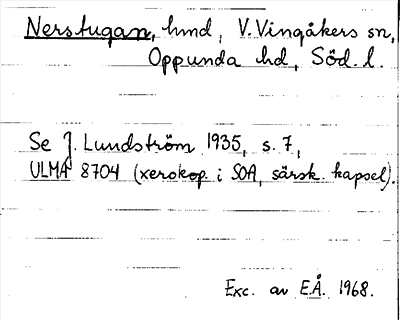 Nerstugan, hmd, V. Vingåkers sn,
Oppunda hd, Söd. l.
Se J. Lundström 1935, s. 7,
ULMA 8704 (xerokop. i SOA, särsk. kapsel).
Exc. av E.Å. 1968.